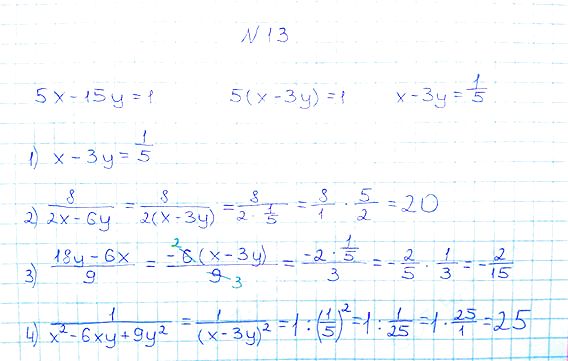 N 13
5x - 15y = 1 5(x - 3y) = 1 x - 3y = 1/5
1) x - 3y = 1/5
2) 8/(2x - 6y) = 8/(2(x - 3y)) = 8/(2 · 1/5) = 8/1 · 5/2 = 20
3) (18y - 6x)/9 = -6(x - 3y)/9 2 3 = (-2 · 1/5)/3 = -2/5 · 1/3 = -2/15
4) 1/(x² - 6xy + 9y²) = 1/(x - 3y)² = 1 : (1/5)² = 1 : 1/25 = 1 · 25/1 = 25